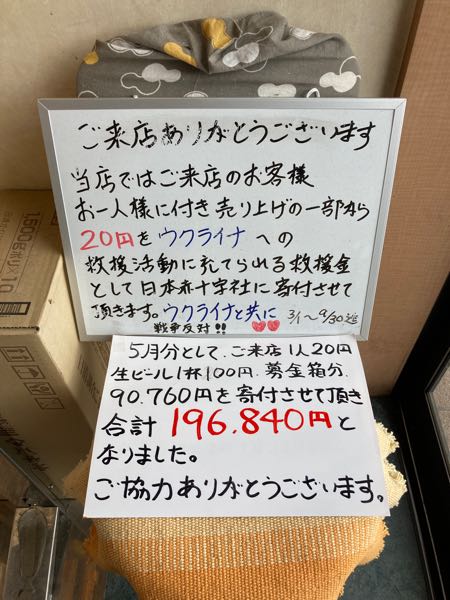 ご来店ありがとうございます
当店ではご来店のお客様
お一人様に付き売り上げの一部から
20円をウクライナへの
救援活動に充てられる救援金
として日本赤十字社に寄付させて
頂きます。ウクライナと共に 3/1〜9/30迄
戦争反対!!
5月分として、ご来店1人20円
生ビール1杯100円、募金箱分、
90.760円を寄付させて頂き
合計196.840円と
なりました。
ご協力ありがとうございます。